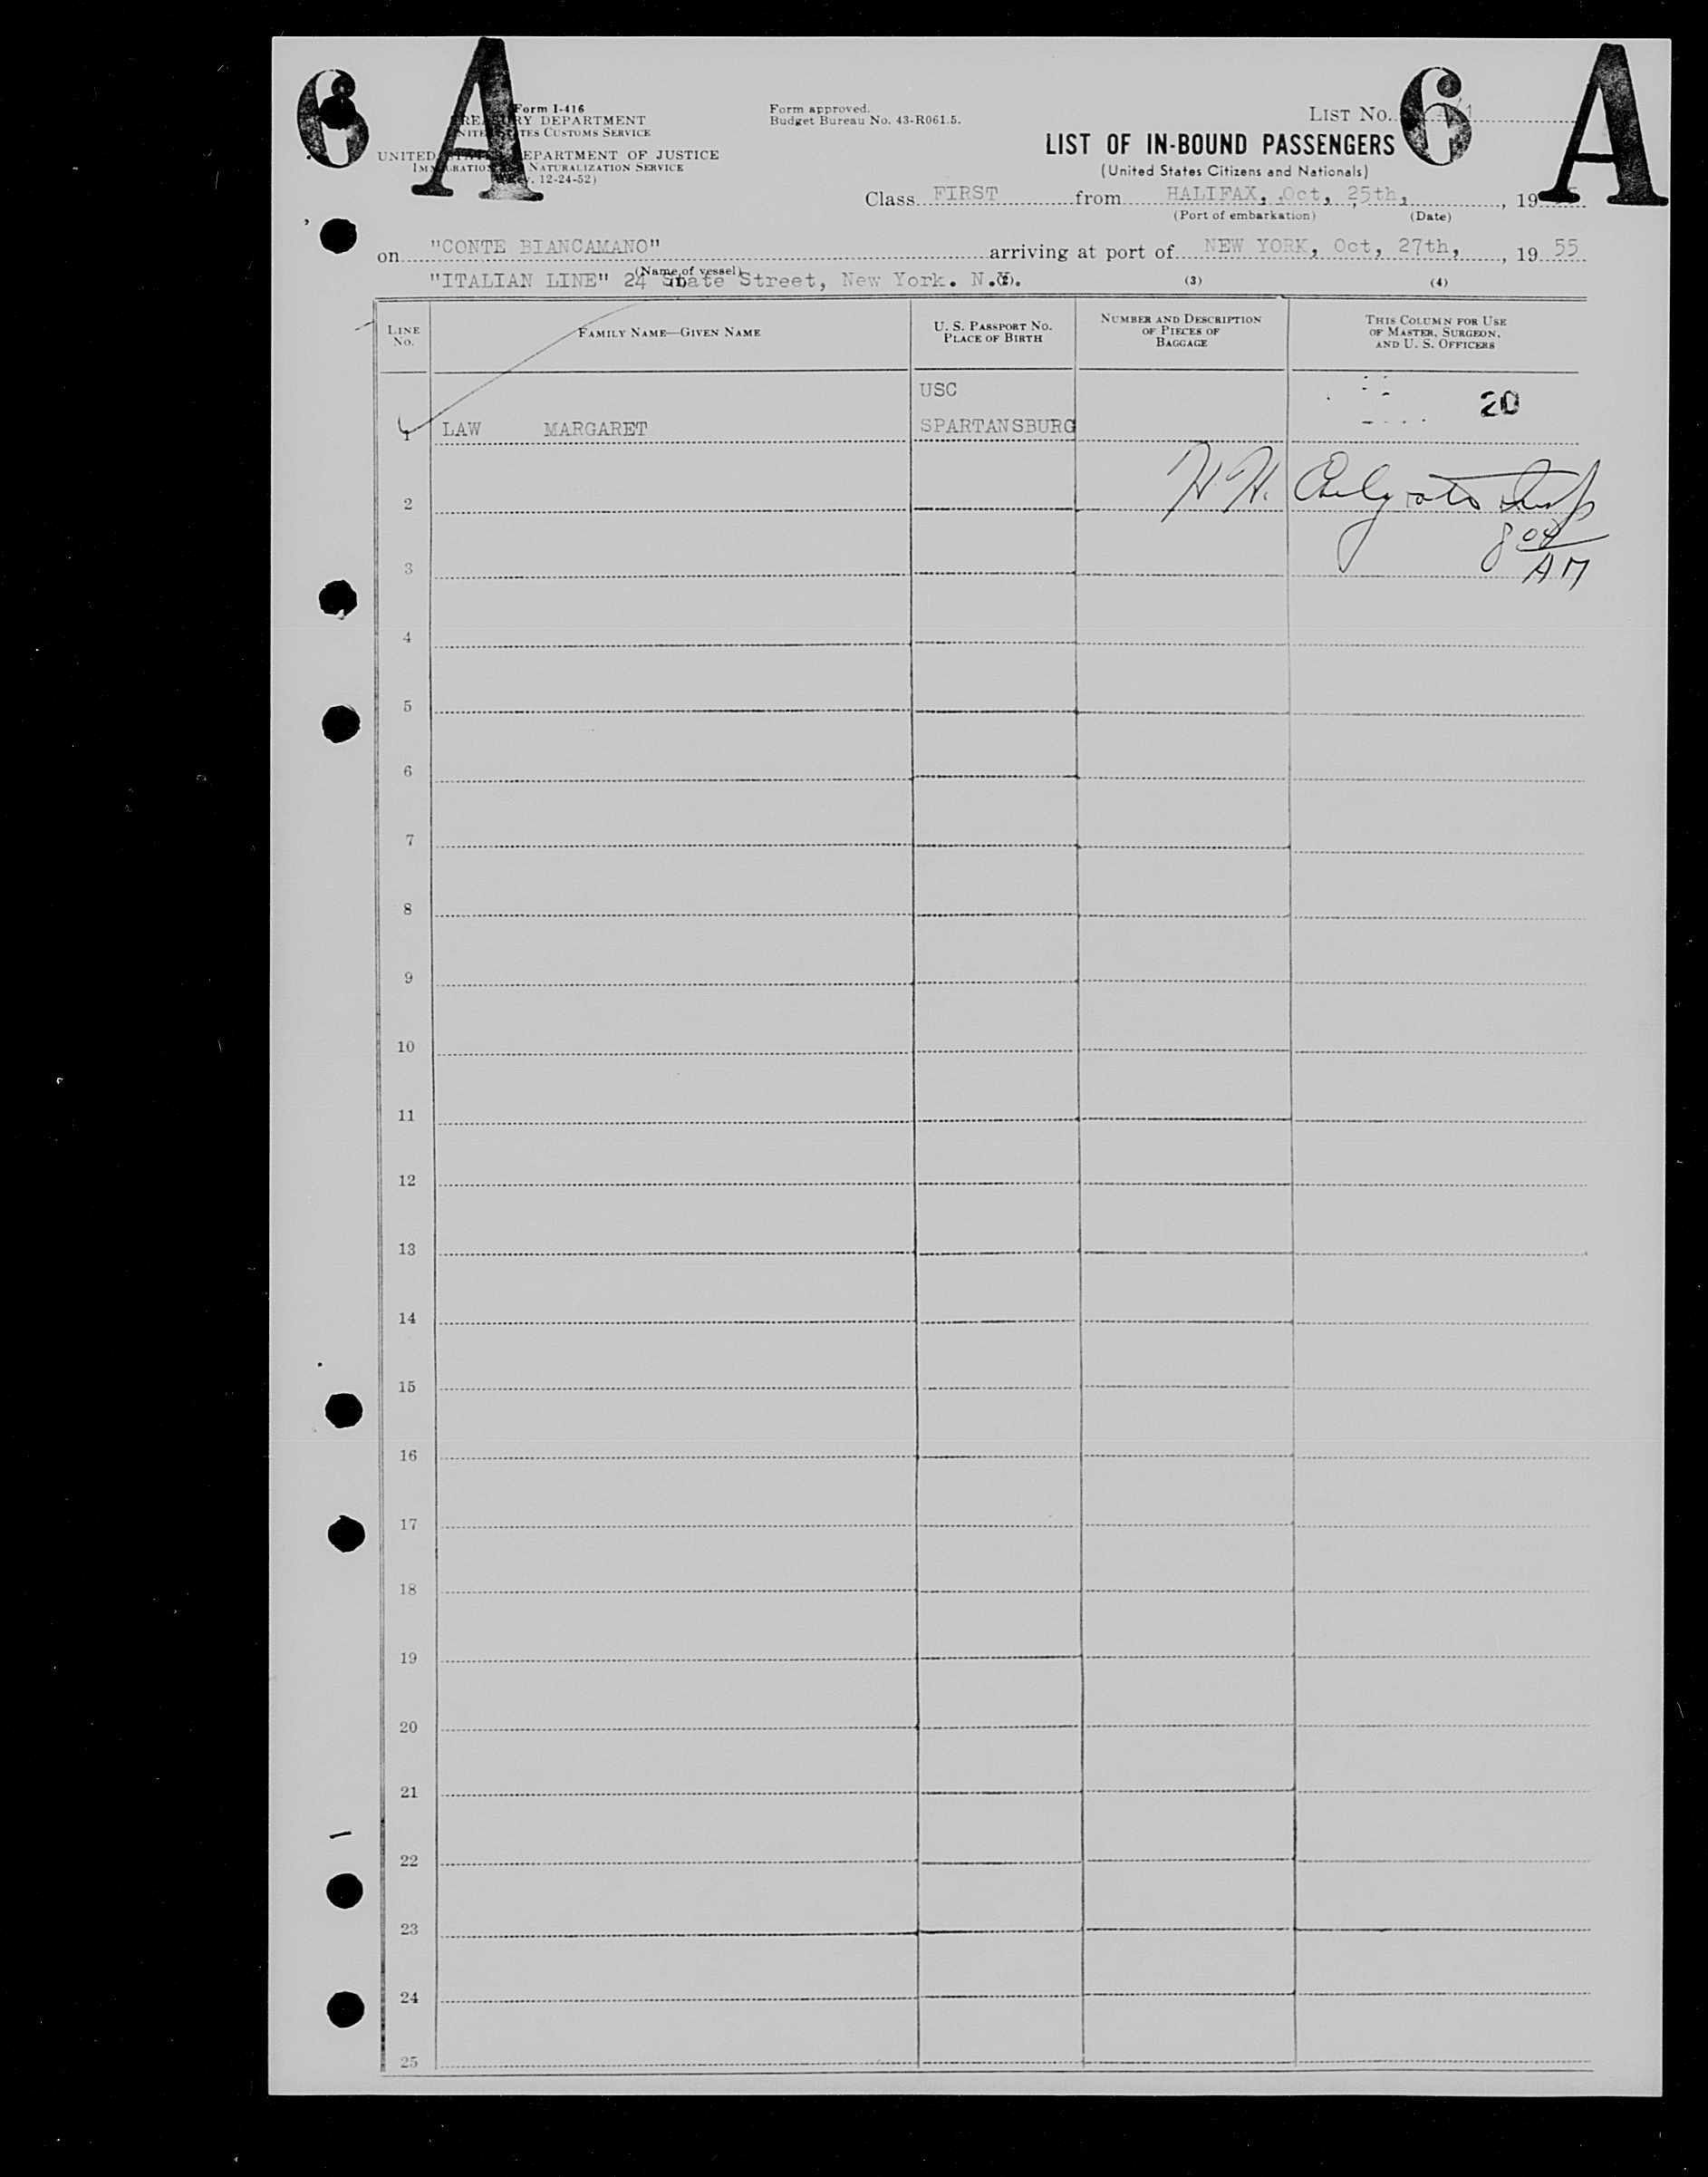 6 A
6 A
Form I-416
TREASURY DEPARTMENT
UNITED STATES CUSTOMS SERVICE
UNITED STATES DEPARTMENT OF JUSTICE
IMMIGRATION AND NATURALIZATION SERVICE
(Rev. 12-24-52)
Form approved.
Budget Bureau No. 43-R061.5.
LIST No.
LIST OF IN-BOUND PASSENGERS
(United States Citizens and Nationals)
Class FIRST from HALIFAX, Oct, 25th, , 19
(Port of embarkation) (Date)
on "CONTE BIANCAMANO" arriving at port of NEW YORK, Oct, 27th, , 19 55
(Name of vessel)
"ITALIAN LINE" 24 State Street, New York. N.Y.
(1) (2) (3) (4)
LINE No. FAMILY NAME—GIVEN NAME U. S. PASSPORT NO. PLACE OF BIRTH NUMBER AND DESCRIPTION OF PIECES OF BAGGAGE THIS COLUMN FOR USE OF MASTER, SURGEON, AND U. S. OFFICERS
USC 20
1 LAW MARGARET SPARTANSBURG
2 H. H.
3 8 04 AM
4
5
6
7
8
9
10
11
12
13
14
15
16
17
18
19
20
21
22
23
24
25